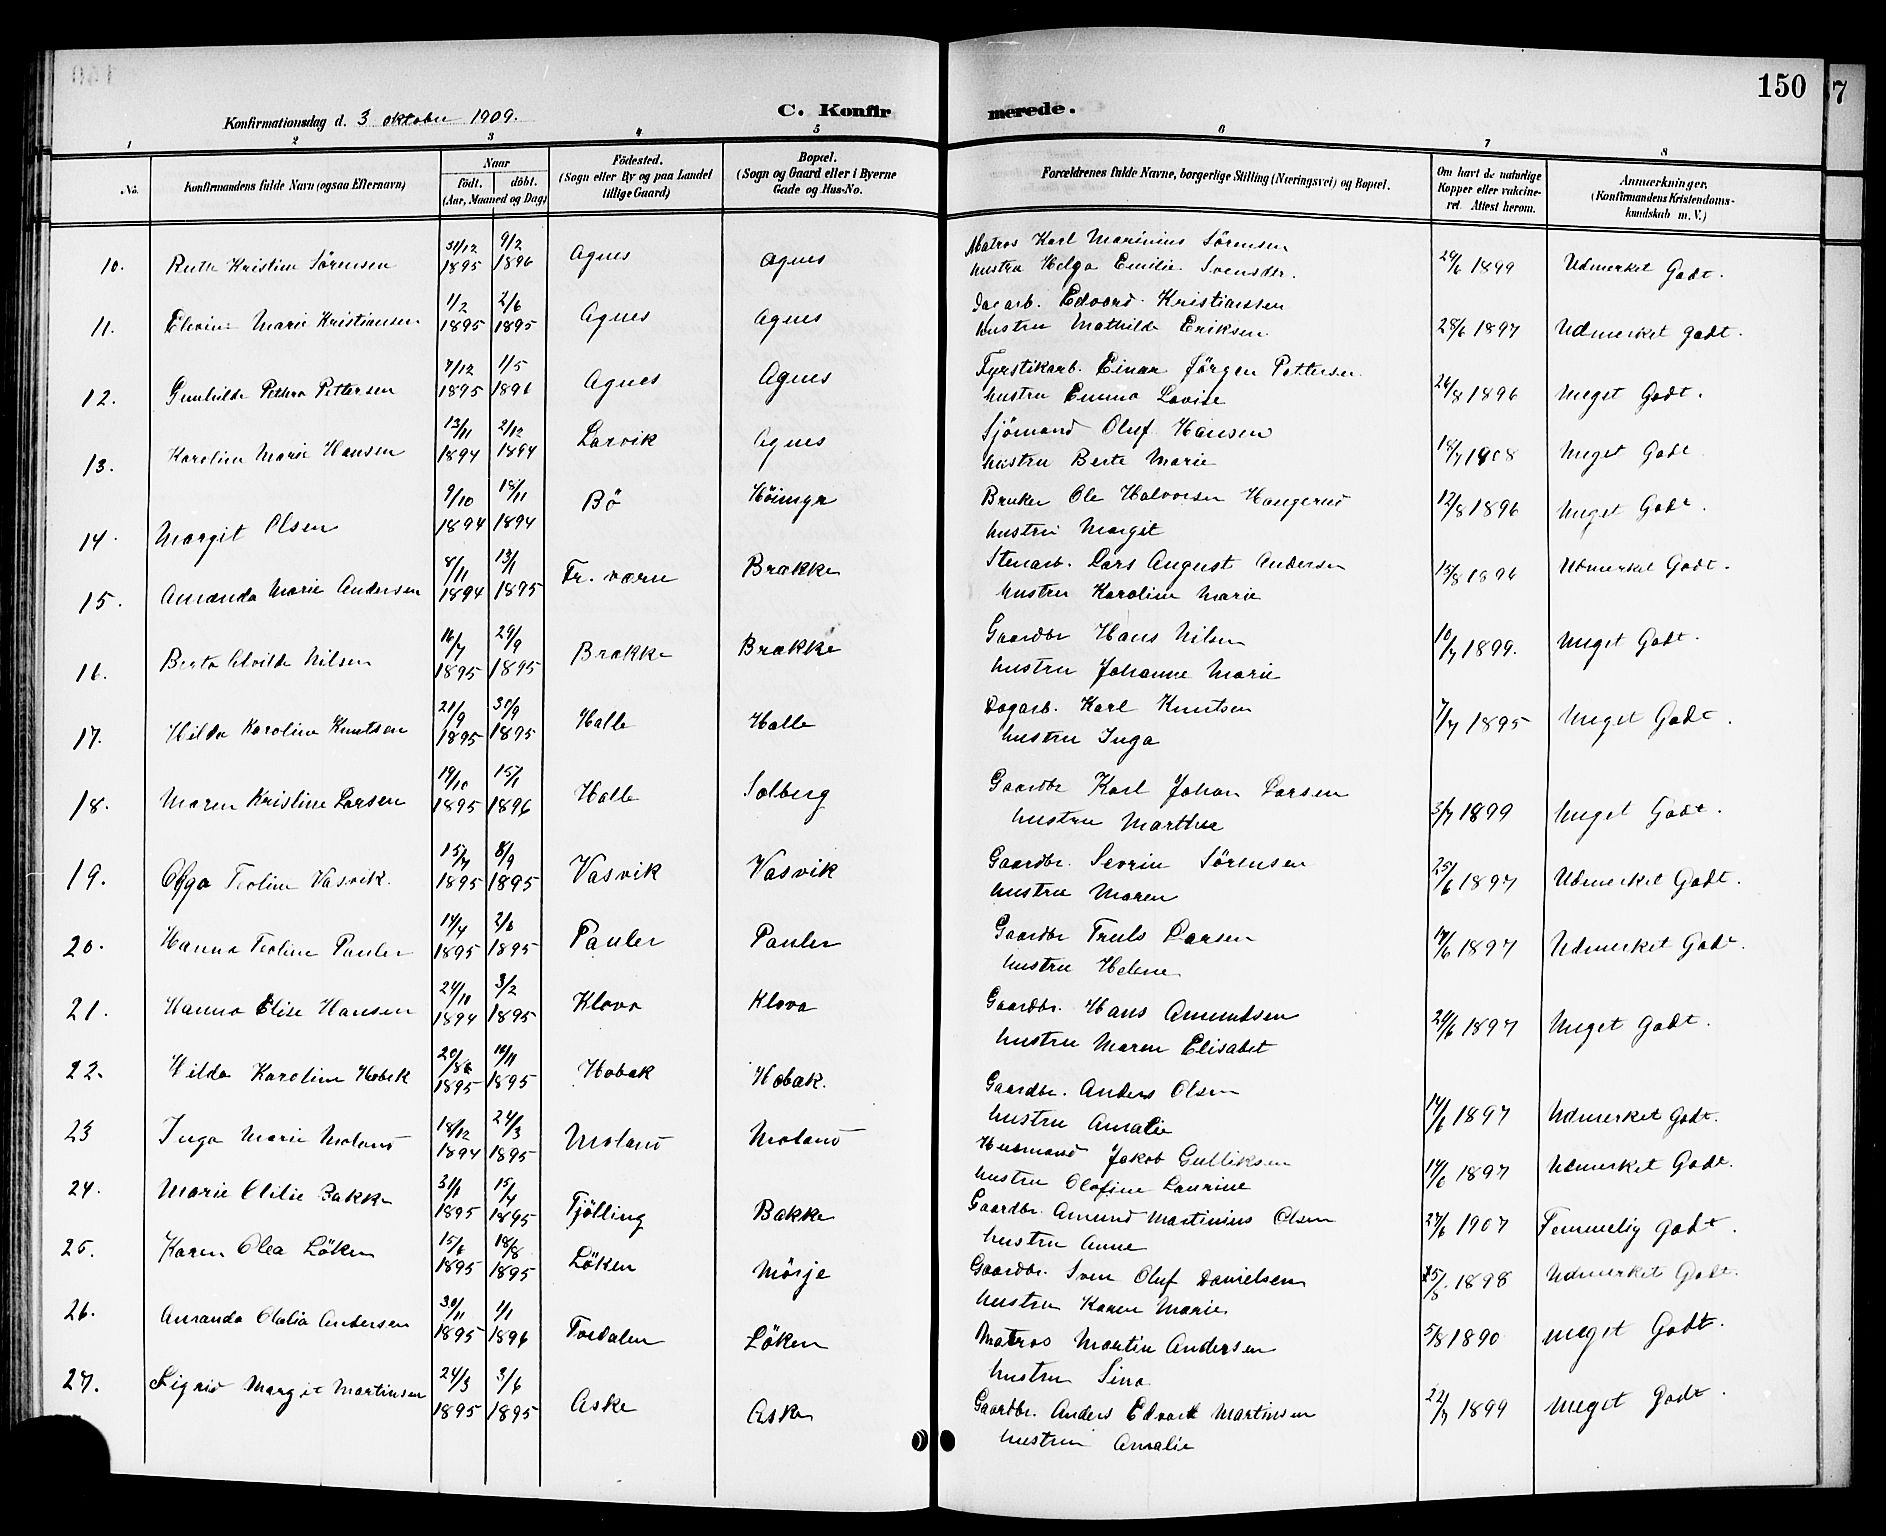 150
Konfirmationsdag d. 3 oktober 1909.
C. Konfirmerede.
1 2 3 4 5 6 7 8
No.
Konfirmandens fulde Navn (ogsaa Efternavn)
Naar
födt. döbt.
(Aar, Maaned og Dag)
Födested.
(Sogn eller By og paa Landet
tillige Gaard)
Bopæl.
(Sogn og Gaard eller i Byerne
Gade og Hus-No.
Forældrenes fulde Navne, borgerlige Stilling (Næringsvei) og Bopæl.
Om havt de naturlige
Kopper eller vakcine-
ret. Attest herom.
Anmærkninger,
(Konfirmandens Kristendoms-
kundskab m. V.)
10. Ruth Kristine Sörensen 31/12 1895 9/2 1896 Agnes Agnes Matros Karl Marinius Sörensen
hustru Helga Emilie Svensdr. 29/6 1899 Udmerket Godt.
11. Marie Kristiansen 1/2 1895 2/6 1895 Agnes Agnes Dagarb. Edvard Kristiansen
hustru Mathilde Eriksen 28/6 1897 Udmerket godt.
12. Gunhilde Petra Pettersen 7/12 1895 1/5 1896 Agnes Agnes Fyrstikarb. Einar Jörgen Pettersen
hustru Emma Lovise 26/8 1896 Meget Godt.
13. Karoline Marie Hansen 13/11 1894 2/12 1894 Larvik Agnes Sjömand Oluf Hansen
hustru Berte Marie 18/7 1908 Meget Godt
14. Margit Olsen 9/10 1894 18/11 1894 Bö Höimyr Bruker Ole Halvorsen Haugerud
hustru Margit 12/8 1896 Meget Godt.
15. Amanda Marie Andersen 8/11 1894 13/1 1895 Fr. værn Brække Stenarb. Lars August Andersen
hustru Karoline Marie 15/8 1896 Udmerket Godt.
16. Berta Alvilde Nilsen 16/7 1895 29/9 1895 Brække Brække Gaardbr Hans Nilsen
hustru Johanne Marie 10/7 1899. Meget Godt.
17. Hilda Karoline Knutsen 21/9 1895 30/9 1895 Halle Halle Dagarb. Karl Knutsen
hustru Inga 7/7 1895 Meget Godt.
18. Maren Kristine Larsen 19/10 1895 15/1 1896 Halle Solberg Gaardbr Karl Johan Larsen
hustru Marthee 3/7 1899 Meget Godt.
19. Olga Teoline Vasvik. 15/7 1895 8/9 1895 Vasvik Vasvik Gaardbr. Sevrin Sörensen
hustru Maren 25/6 1897 Udmerket Godt.
20. Hanna Teoline Pauler 14/4 1895 2/6 1895 Pauler Pauler Gaardbr Truls Larsen
hustru Helene 14/6 1897 Udmerket Godt.
21. Hanna Elise Hansen 24/10 1894 3/2 1895 Klova Klova Gaardbr. Hans Amundsen
hustru Maren Elisabet 24/6 1897 Meget Godt.
22. Hilda Karoline Hobæk 1895 10/11 1895 Hobæk Hobæk. Gaardbr. Anders Olsen
hustru Amalie 14/6 1897 Udmerket Godt.
23 Inga Marie Moland 18/12 1894 24/3 1895 Moland Moland Husmand Jakob Gulliksen
hustru Olofine Laurine 14/6 1897 Udmerket Godt.
24. Marie Otilie Bakke 31/1 1895 15/4 1895 Tjölling Bakke Gaardbr. Amund Martinius Olsen
hustru Anne 27/6 1907 Temmelig godt.
25. Karen Olea Löken 15/6 1895 18/8 1895 Löken Mörje Gaardbr. Sven Oluf Danielsen
hustru Karen Marie 1898 Udmerket Godt.
26. Amanda Olalia Andersen 30/11 1895 1/1 1896 Tvedalen Löken Matros Martin Andersen
hustru Sina 5/8 1890 meget Godt.
27. Sigrid Margit Martinsen 24/3 1895 3/6 1895 Aske Aske Gaardbr. Anders Edvard Martinsen
hustru Amalie 22/7 1899 Meget Godt.